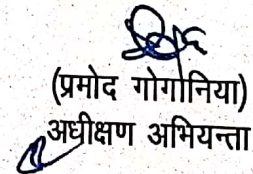 (प्रमोद गोगोनिया)
अधीक्षण अभियन्ता